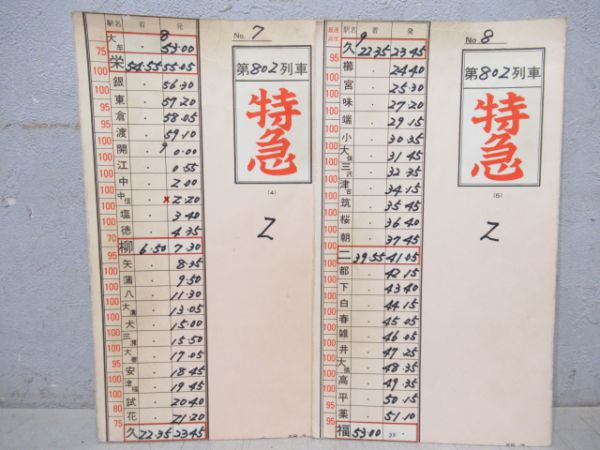 駅名 着 発
8
大牟 53.00
75
栄 54.55 55.05
100
銀 . 56.30
95
東 . 57.20
100
倉 . 58.05
渡 . 59.10
開 . 9 0.00
100
江 . 0.55
100
中 . 2.00
中島 . ×2.20
100
塩 . 3.40
100
徳 . 4.35
70
柳 6.50 7.30
95
矢 . 8.35
100
蒲 . 9.50
100
八 . 11.30
100
大溝 . 13.05
100
犬 . 15.00
100
三潴 . 15.50
大善 . 17.05
100
安 . 18.45
100
津福 . 19.45
100
試 . 20.40
花 . 21.20
75
久 22.35 23.45
No. 7
第802列車
特急
(4)
2
駅名 着 発
9
久 22.35 23.45
櫛 . 24.40
宮 . 25.30
味 . 27.20
端 . 29.15
小 . 30.35
大保 . 31.45
三沢 . 32.35
津古 . 34.15
筑 . 35.45
桜 . 36.40
朝 . 37.45
二 39.55 41.05
都 . 42.15
下 . 43.40
白 . 44.15
春 . 45.05
雑 . 46.05
井 . 47.25
大橋 . 48.35
高 . 49.35
平 . 50.15
薬 . 51.10
福 53.00
No. 8
第802列車
特急
(5)
2